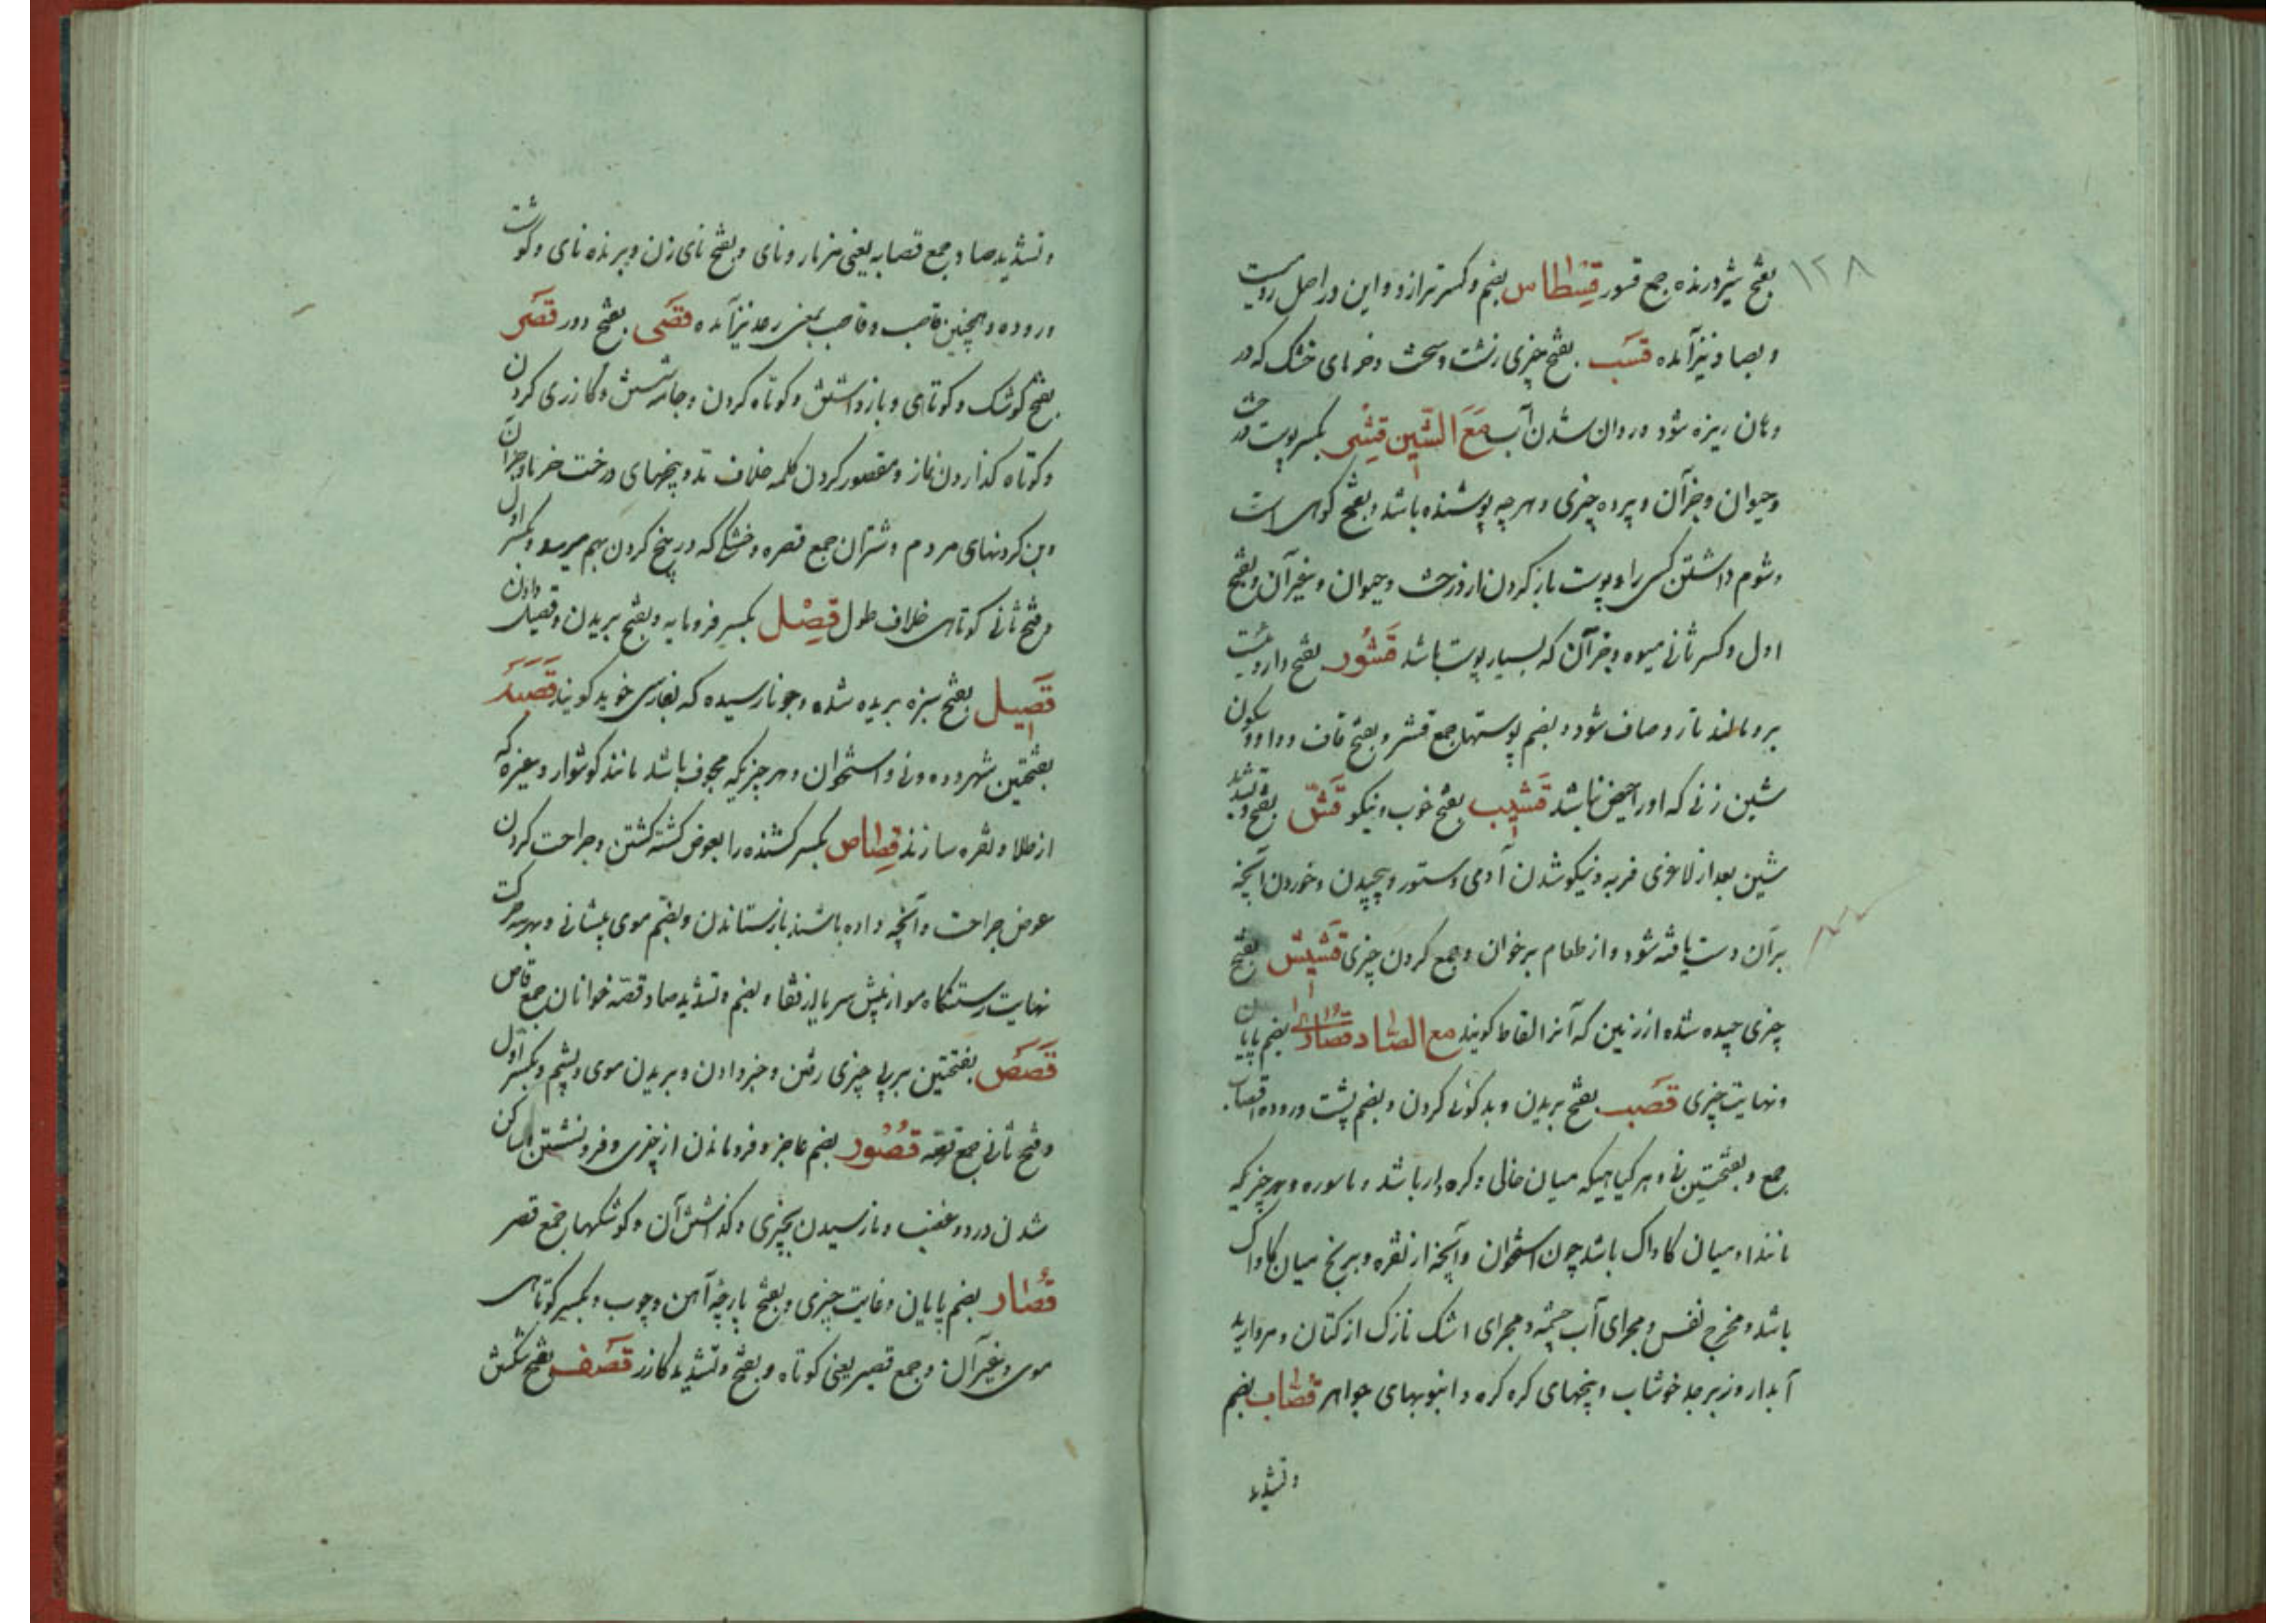 ۱۲۸
بفتح شیر درنده جمع قسور قسطاس بضم و کسر ترازو و این در اصل رومیست
و بصاد نیز آمده قسب بفتح چیزی زشت و سخت و خرمای خشک که در
دهان ریزه شود و روان شدن آب مع الشین قشر بکسر پوست درخت
و حیوان و جز آن و پرده چیزی و هر چه پوشنده باشد و بفتح کوهی است
و شوم داشتن کسی را و پوست باز کردن از درخت و حیوان و غیر آن و بفتح
اول و کسر ثانی میوه و جز آن که بسیار پوست باشد قشور بفتح داروئیست
بر رو مالند تا رو صاف شود و بضم پوستها جمع قشر و بفتح قاف و واو و سکون
شین زنی که او را حیض نباشد قشیب بفتح خوب و نیکو قش بفتح و تشدید
شین بعد از لاغری فربه و نیکو شدن آدمی و ستور و پیچیدن و خوردن آنچه
بر آن دست یافته شود و از طعام بر خوان و جمع کردن چیزی قشیش بفتح
چیزی چیده شده از زمین که آنرا لقاط کویند مع الصاد قصارا بضم پایان
و نهایت چیزی قصب بفتح بریدن و بدکوئی کردن و بضم پشت و روده اقصاب
جمع و بفتحتین نی و هر کیاهیکه میان خالی و کره دار باشد و ماسوره و هر چیزیکه
مانند او میان کاواک باشد چون استخوان و آنچه از نقره و برنج میان کاواک
باشد و مخرج نفس و مجرای آب چشمه و مجرای اشک نازک از کتان و مروارید
آبدار و زبرجد خوشاب و پنجهای کره کره و انبوبهای جواهر قصاب بضم
و تشدید
و تشدید صاد جمع قصابه یعنی مزمار و نای و بفتح نای زن و برنده نای و کوشت
و روده و همچنین قاصب و قاصب بمعنی رعد نیز آمده قصی بفتح دور قصر
بفتح کوشک و کوتاهی و بازداشتن و کوتاه کردن و جامه شستن و کازری کردن
و کوتاه کذاردن نماز و مقصور کردن کلمه خلاف مد و پنجهای درخت خرما و جز آن
و بن کردنهای مردم و شتران جمع قصره و خشکی که در پنج کردن بهم میرسد و بکسر اول
و فتح ثانی کوتاهی خلاف طول قصل بکسر فرومایه و بفتح بریدن و قصیل دادن
قصیل بفتح سبزه بریده شده و جو نارسیده که بفارسی خوید کویند قصبه
بفتحتین شهر و ده و نی و استخوان و هر چیزیکه مجوف باشد مانند کوشوار و غیره که
از طلا و نقره سازند قصاص بکسر کشنده را بعوض کشته کشتن و جراحت کردن
عوض جراحت و آنچه داده باشند باز ستاندن و بضم موی پیشانی و بهر سه حرکت
نهایت رستنکاه مو از پیش سر یا از قفا و بضم و تشدید صاد قصه خوانان جمع قاص
قصص بفتحتین بر پی چیزی رفتن و خبر دادن و بریدن موی و پشم و بکسر اول
و فتح ثانی جمع قصه قصور بضم عاجز و فروماندن از چیزی و فرو نشستن و ساکن
شدن درد و غضب و نارسیدن بچیزی و کذاشتن آن و کوشکها جمع قصر
قصار بضم پایان و غایت چیزی و بفتح پارچه آهن و چوب و بکسر کوتاهی
موی و غیر آن و جمع قصیر یعنی کوتاه و بفتح و تشدید کازر قصف بفتح شکستن